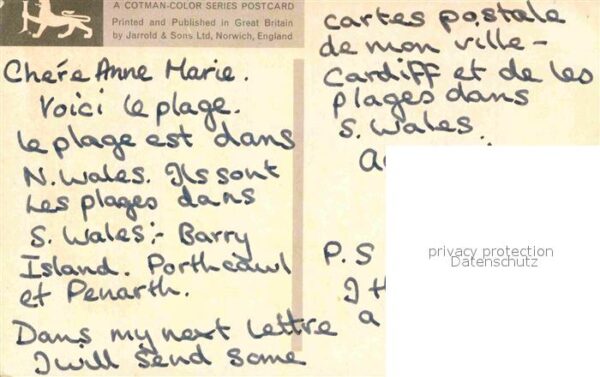 A COTMAN-COLOR SERIES POSTCARD
Printed and Published in Great Britain
by Jarrold & Sons Ltd, Norwich, England
Chère Anne Marie.
Voici le plage.
Le plage est dans
N. Wales. Ils sont
Les plages dans
S. Wales:- Barry
Island. Porthcawl
et Penarth.
Dans my next lettre
I will send some
cartes postale
de mon ville-
Cardiff et de les
plages dans
S. Wales.
P.S
I
a
privacy protection
Datenschutz